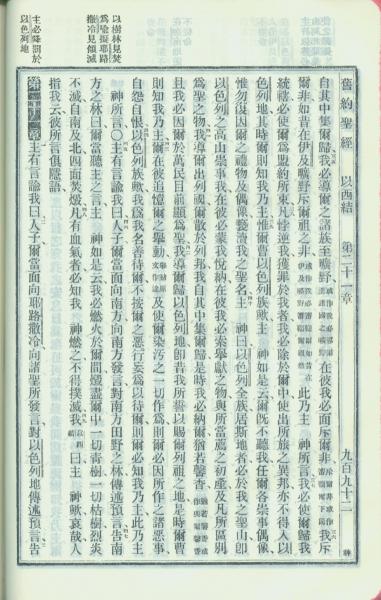 舊約聖經 以西結 第二十一章 九百九十二
自其中集爾歸、我必導爾之諸族至曠野、在彼我必面斥爾非、我斥
爾非、如昔在伊及曠野斥爾祖之非、此乃主 神所言、我必使爾歸我
統轄、必使爾爲盟約所束、凡悖逆我獲罪於我者、我必除於爾中、使出所旅之異邦、亦不得入以
色列地、其時爾則知我乃主、惟爾曹以色列族歟、主 神如是云、爾旣不聽我、任爾各崇事偶像、
惟勿復因爾之禮物及偶像褻瀆我之聖名、主 神曰、以色列全族居斯地者、必於我之聖山、卽
以色列之高山崇事我、在彼必蒙我悅納、在彼我必索舉獻之物、與所當薦之初產、及凡所區別
爲聖之物、我導爾出列國、爾散於列邦、我自其中集爾歸、是時我必納爾猶若馨香、
且我必因爾於萬民目前顯爲聖、我導爾歸以色列地、卽昔我所誓以賜爾列祖之地、是時爾曹
則知我乃主、爾在彼追憶爾之舉動、及使爾染污之一切作爲、則爾必因所作之諸惡事
自怨自恨、以色列族歟、我爲我名善待爾、不按爾之惡行妄爲以待爾、則爾必知我乃主、此乃主
神所言、〇主有言諭我曰、人子、爾當面向南方、向南方發言、對南方田野之林傳述預言、告南
方之林曰、爾當聽主之言、主 神如是云、我必燃火於爾間、燬盡爾中一切靑樹一切枯樹、烈炎
不滅、自南及北四面焚燬、凡有血氣者必知我 神燃之不得撲滅、我曰、主 神歟、哀哉、人
指我云、彼所言俱隱語、
第二十一章 主有言諭我曰、人子、爾當面向耶路撒冷、向諸聖所發言、對以色列地傳述預言、告
以樹林見焚
爲喻擬耶路
撒冷見傾滅
主必降罰於
以色列地